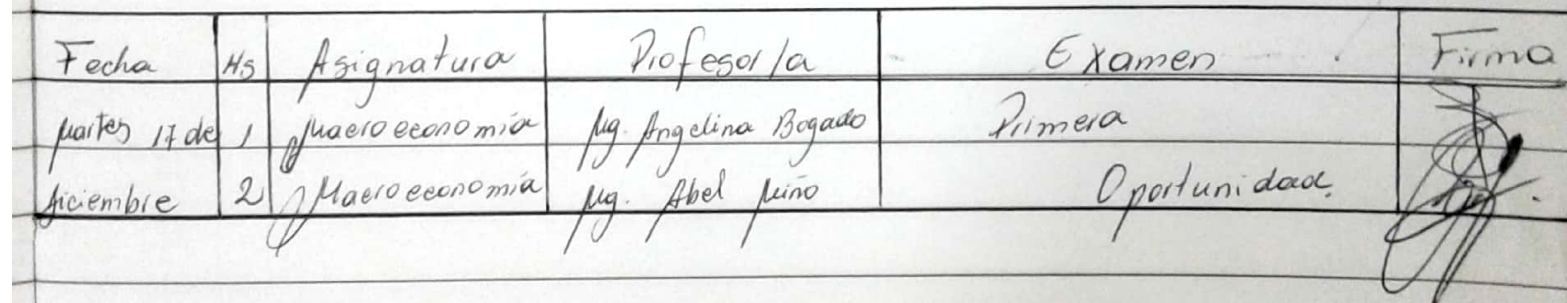 Fecha Hs Asignatura Profesor/a Examen Firma
Martes 17 de 1 Macroeconomía Mg. Angelina Bogado Primera
diciembre 2 Macroeconomía Mg. Abel Miño Oportunidad.